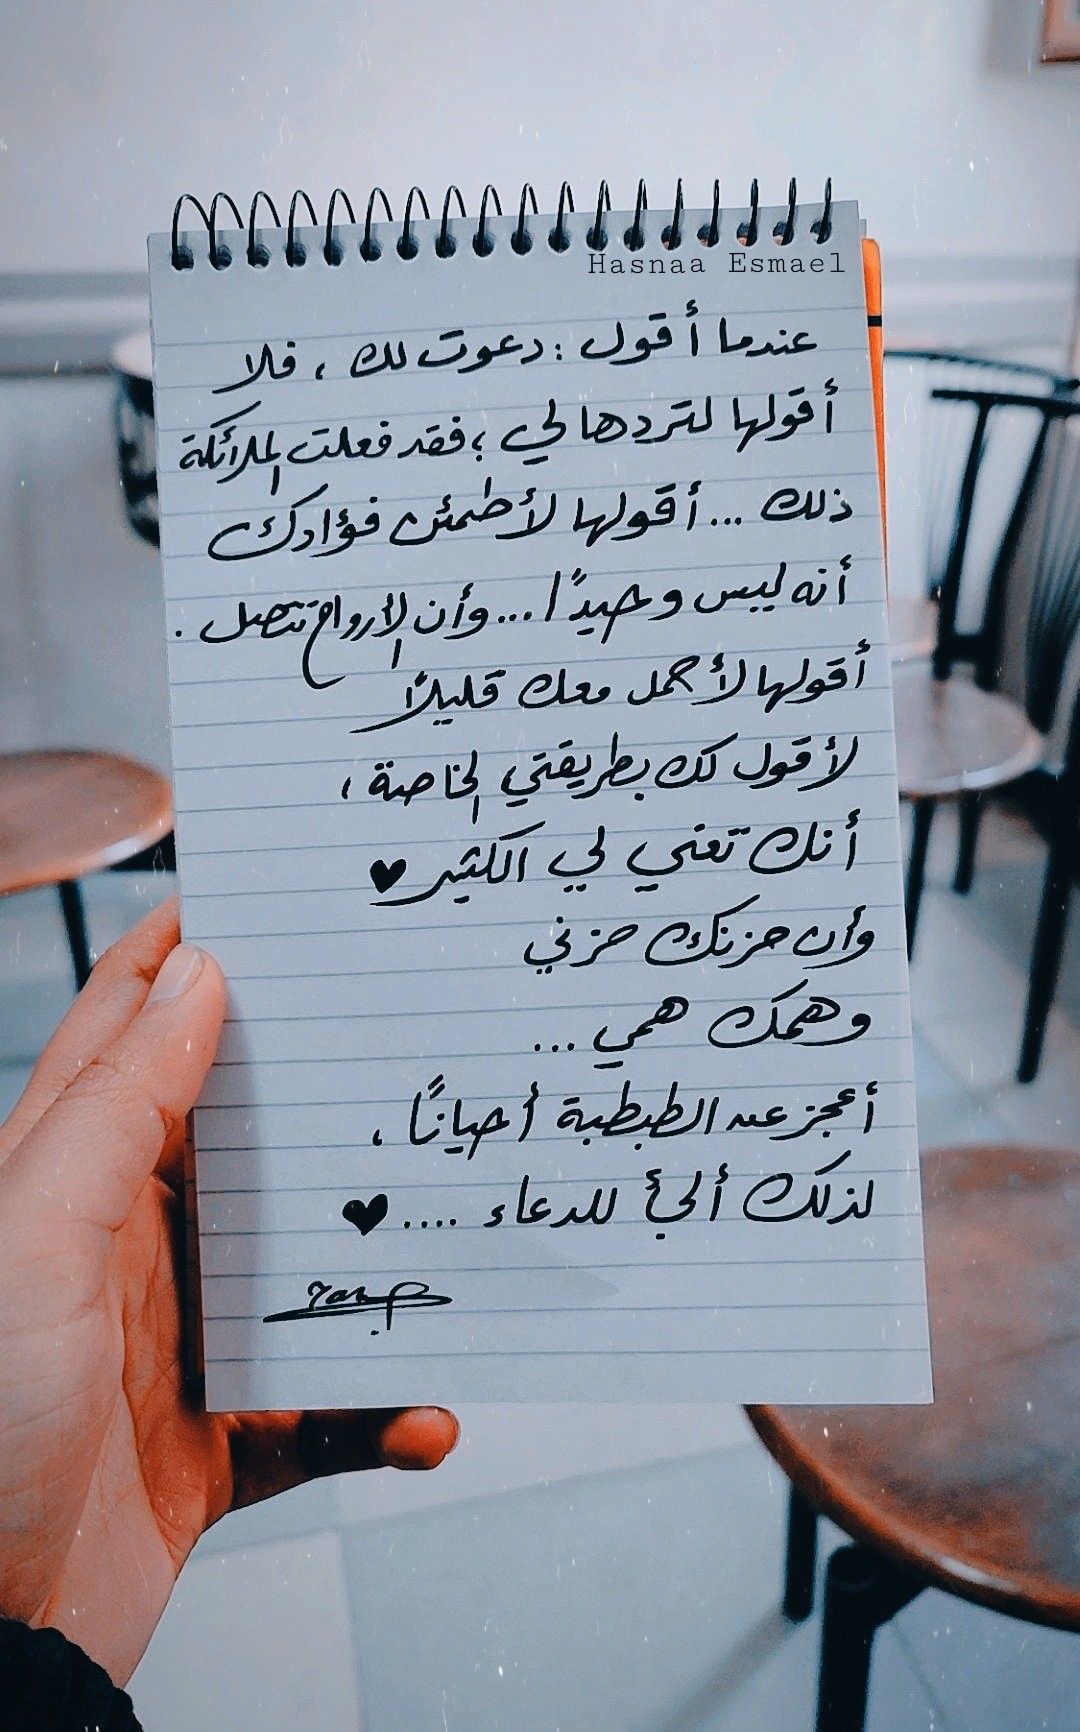 Hasnaa Esmael
عندما أقول : دعوت لك ، فلا
أقولها لتردها لي ؛ فقد فعلت الملائكة
ذلك ... أقولها لأطمئن فؤادك
أنه ليس وحيدًا ... وأن الأرواح تتصل .
أقولها لأحمل معك قليلًا
لأقول لك بطريقتي الخاصة ،
أنك تعني لي الكثير ♥
وأن حزنك حزني
وهمك همي ...
أعجز عن الطبطبة أحيانًا ،
لذلك ألجأ للدعاء .... ♥